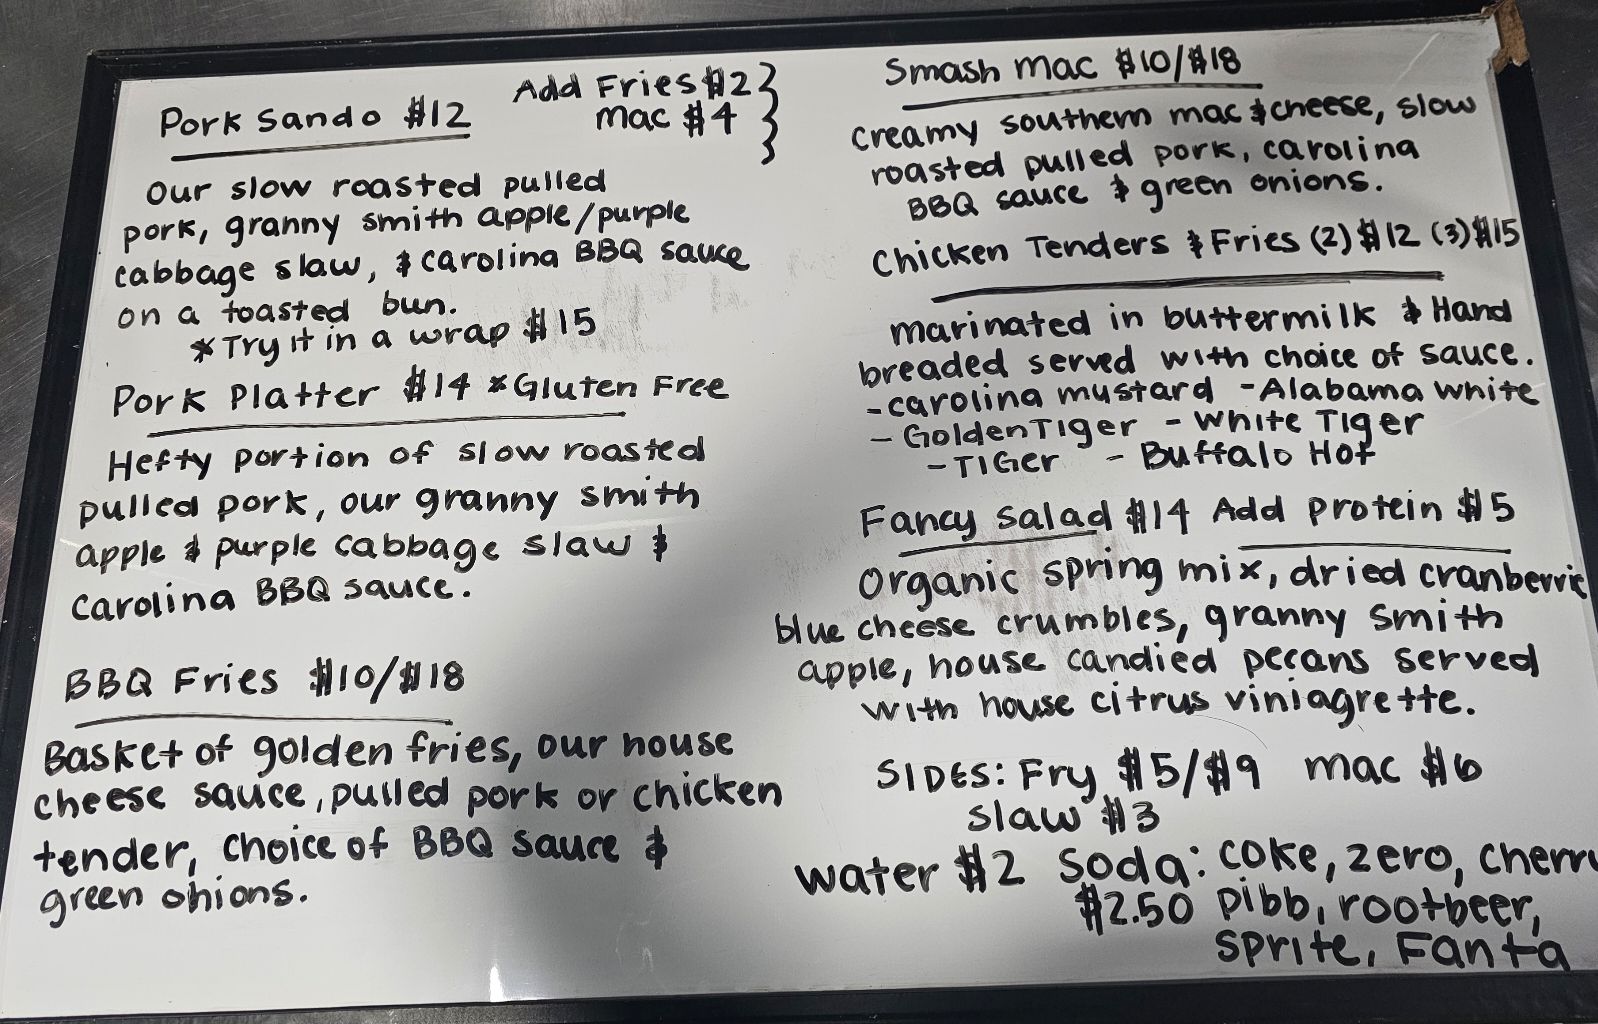 Pork Sando $12
Add Fries $2
Mac $4
Our slow roasted pulled
pork, granny smith apple/purple
cabbage slaw, & carolina BBQ sauce
on a toasted bun.
*Try it in a wrap $15
Pork Platter $14 *Gluten Free
Hefty portion of slow roasted
pulled pork, our granny smith
apple & purple cabbage slaw &
Carolina BBQ sauce.
BBQ Fries $10/$18
Basket of golden fries, our house
cheese sauce, pulled pork or chicken
tender, choice of BBQ sauce &
green onions.
Smash Mac $10/$18
Creamy southern mac & cheese, slow
roasted pulled pork, carolina
BBQ sauce & green onions.
Chicken Tenders & Fries (2) $12 (3) $15
Marinated in buttermilk & Hand
breaded served with choice of sauce.
- Carolina mustard - Alabama white
- Golden Tiger - White Tiger
- Tiger - Buffalo Hot
Fancy Salad $14 Add protein $5
Organic spring mix, dried cranberrie
blue cheese crumbles, granny smith
apple, house candied pecans served
with house citrus viniagrette.
SIDES: Fry $5/$9 Mac $6
Slaw $3
Water $2 Soda: Coke, zero, cherry
$2.50 pibb, rootbeer,
sprite, Fanta